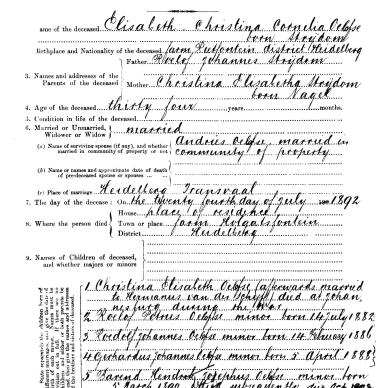 ame of the deceased Elisabeth Christina Cornelia Oelofse
born Strydom
Birthplace and Nationality of the deceased farm Rietfontein district Heidelberg
Father Roelof Johannes Strydom
3. Names and addresses of the
Parents of the deceased
Mother Christina Elisabetha Strydom
born Nagel
4. Age of the deceased thirty four years months.
5. Condition in life of the deceased
6. Married or Unmarried,
Widower or Widow married
(a) Name of surviving spouse (if any), and whether
married in community of property or not
Andries Oelofse, married in
community of property
(b) Name or names and approximate date of death
of pre-deceased spouse or spouses
(c) Place of marriage Heidelberg Transvaal
7. The day of the decease: On the twenty fourth day of July 1892
8. Where the person died
House place of residence
Town or place farm
District Heidelberg
9. Names of Children of deceased,
and whether majors or minors
1 Christina Elisabeth Oelofse (afterwards married
to Hermanus van der Schyff) died at Johan
nesburg during the War
2 Roelof Petrus Oelofse minor born 14 July 1882
3 Roelof Johannes Oelofse minor born 14 February 1886
4 Gerhardus Johannes Oelofse minor born 5 April 1888
5 Barend Hendrik Josephus Oelofse minor born
March 1890